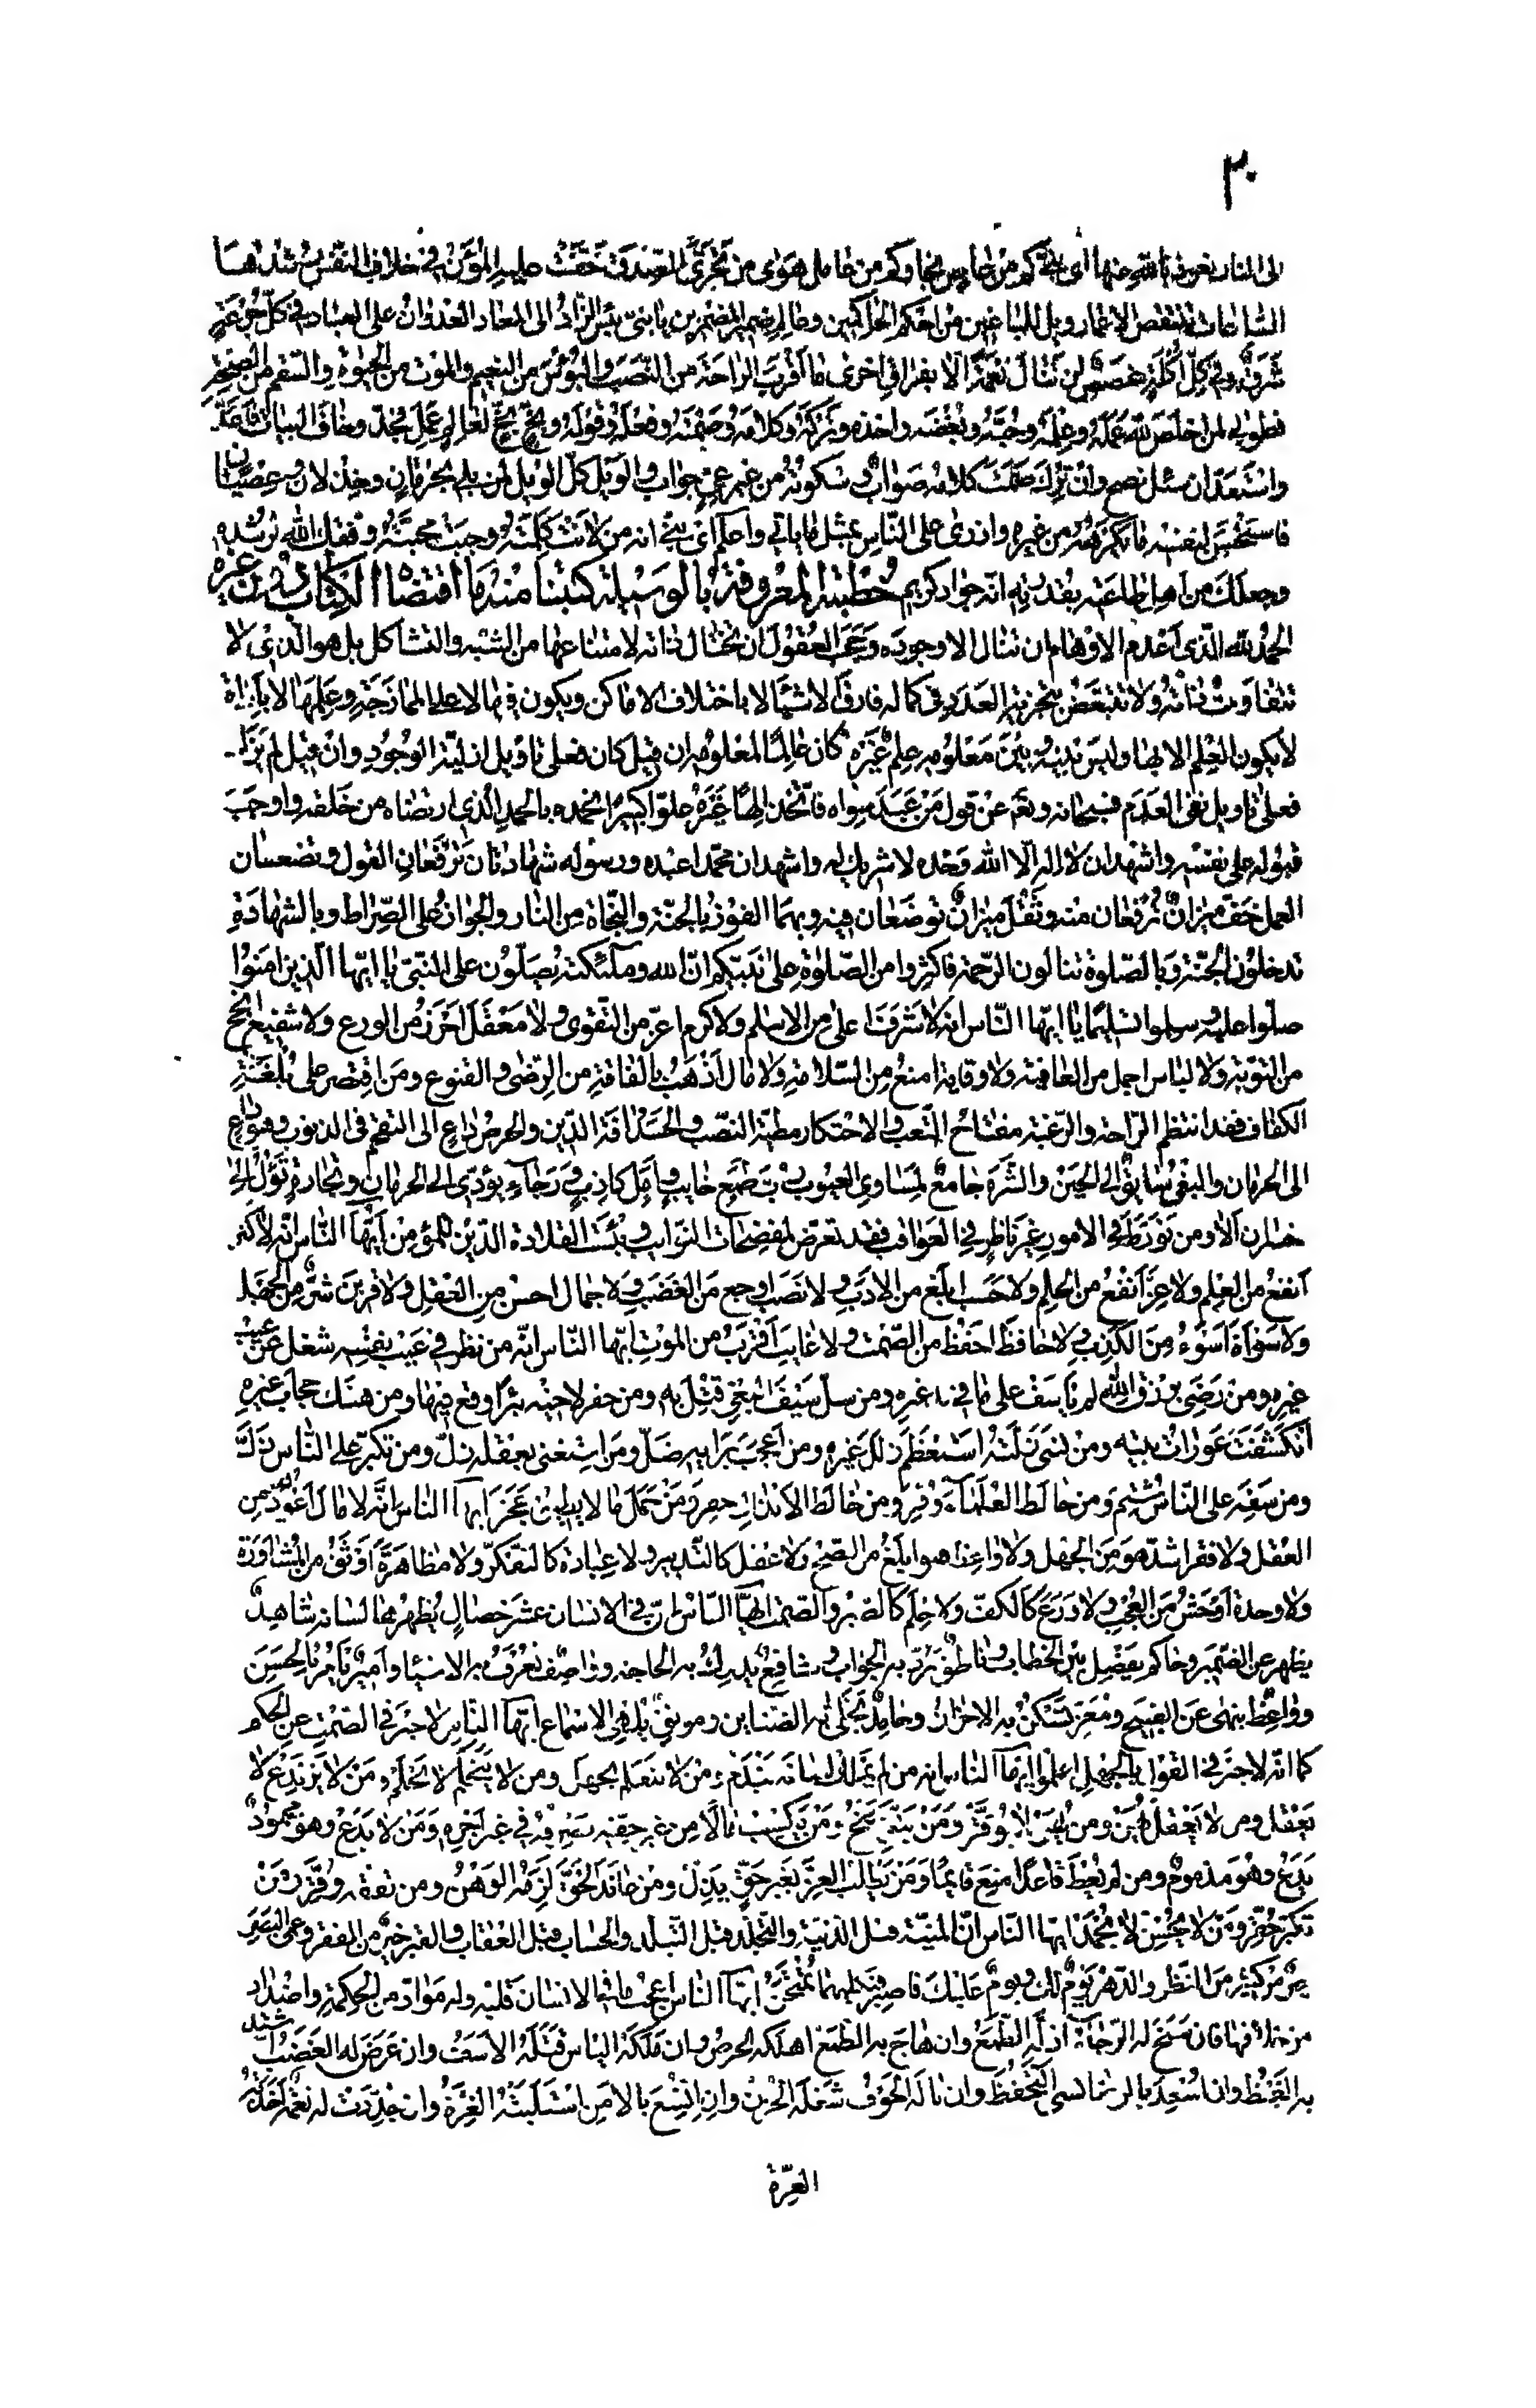 ٣٠
الى النار نعوذ بالله منها اى بنى كم من عاص نجا وكم من عامل هوى من تحرى الصدق خفت عليه المؤن في خلاف النفس رشدها
الساعات تنتقص الاعمار ويل للباغين من احكم الحاكمين وعالم ضمير المضمرين يا بنى بئس الزاد الى المعاد العدوان على العباد في كل جرعة
شرق وفي كل اكلة غصص لن تنال نعمة الا بفراق اخرى ما اقرب الراحة من النصب والبؤس من النعيم والموت من الحيوة والسقم من الصحة
فطوبى لمن اخلص لله عمله وعلمه وحبه وبغضه واخذه وتركه وكلامه وصمته وفعله وقوله وبخ بخ لعالم عمل فجد وخاف البيات فاعد
واستعد ان سئل نصح وان ترك صمت كلامه صواب وسكوته من غير عى جواب والويل كل الويل لمن بلى بحرمان وخذلان وعصيان
فاستحسن لنفسه ما يكرهه من غيره وازرى على الناس بمثل ما ياتى واعلم اى بنى انه من لانت كلمته وجبت محبته وفقك الله لرشده
وجعلك من اهل طاعته بقدرته انه جواد كريم خطبته المعروفة بالوسيلة كتبنا منها ما اقتضاه الكتاب دون غيره
الحمد لله الذى اعدم الاوهام ان تنال الا وجوده وحجب العقول ان تختال ذاته لامتناعها من الشبه والتشاكل بل هو الذى لا
تتفاوت ذاته ولا تتبعض بتجزية العدد في كماله فارق الاشياء لا باختلاف الاماكن ويكون فيها لا على الممازجة وعلمها لا باداة
لا يكون العلم الا بها وليس بينه وبين معلومه علم غيره كان عالما لمعلومه ان قيل كان فعلى تاويل ازلية الوجود وان قيل لم يزل
فعلى تاويل نفى العدم فسبحانه وتعالى عن قول من عبد سواه فاتخذ الها غيره علوا كبيرا نحمده بالحمد الذى ارتضاه من خلقه واوجب
قبوله على نفسه واشهد ان لا اله الا الله وحده لا شريك له واشهد ان محمدا عبده ورسوله شهادتان ترفعان القول وتضعان
العمل خف ميزان ترفعان منه وثقل ميزان توضعان فيه وبهما الفوز بالجنة والنجاة من النار والجواز على الصراط وبالشهادة
تدخلون الجنة وبالصلوة تنالون الرحمة فاكثروا من الصلوة على نبيكم ان الله وملائكته يصلون على النبى يا ايها الذين امنوا
صلوا عليه وسلموا تسليما يا ايها الناس انه لا شرف اعلى من الاسلام ولا كرم اعز من التقوى ولا معقل احرز من الورع ولا شفيع انجح
من التوبة ولا لباس اجمل من العافية ولا وقاية امنع من السلامة ولا مال اذهب بالفاقة من الرضى والقنوع ومن اقتصر على بلغة
الكفاف فقد انتظم الراحة والرغبة مفتاح التعب والاحتكار مطية النصب والحسد افة الدين والحرص داع الى التقحم في الذنوب وهو داع
الى الحرمان والبغى سايق الى الحين والشره جامع لمساوى العيوب رب طمع خايب وامل كاذب ورجاء يؤدى الى الحرمان وتجارة تؤل الى
خسران الا ومن تورط في الامور غير ناظر في العواقب فقد تعرض لمفضحات النوايب وبئست القلادة الدين للمؤمن ايها الناس انه لا كنز
انفع من العلم ولا عز انفع من الحلم ولا حسب ابلغ من الادب ولا نصب اوجع من الغضب ولا جمال احسن من العقل ولا قرين شر من الجهل
ولا سوأة اسوء من الكذب ولا حافظ احفظ من الصمت ولا غايب اقرب من الموت ايها الناس انه من نظر في عيب نفسه شغل عن عيب
غيره ومن رضى برزق الله لم ياسف على ما في يد غيره ومن سل سيف البغى قتل به ومن حفر لاخيه بئرا وقع فيها ومن هتك حجاب غيره
انكشفت عورات بيته ومن نسى زلته استعظم زلل غيره ومن اعجب برايه ضل ومن استغنى بعقله زل ومن تكبر على الناس ذل
ومن سفه على الناس شتم ومن خالط العلماء وقر ومن خالط الانذال حقر ومن حمل ما لا يطيق عجز ايها الناس انه لا مال اعود من
العقل ولا فقر اشد هو من الجهل ولا واعظ هو ابلغ من النصح ولا عقل كالتدبير ولا عبادة كالتفكر ولا مظاهرة اوثق من المشاورة
ولا وحدة اوحش من العجب ولا ورع كالكف ولا حلم كالصبر والصمت ايها الناس ان في الانسان عشر خصال يظهرها لسانه شاهد
يظهر عن الضمير وحاكم يفصل بين الخطاب وناطق يرد به الجواب وشافع يدرك به الحاجة وواصف تعرف به الاشياء وامير يامر بالحسن
وواعظ ينهى عن القبيح ومعز تسكن به الاحزان وحامد تجلى به الضغاين ومونق يلهى الاسماع ايها الناس لا خير في الصمت عن الحكم
كما انه لا خير في القول بالجهل اعلموا ايها الناس انه من لم يملك لسانه يندم ومن لا يتعلم يجهل ومن لا يتحلم لا يحلم ومن لا يرتدع لا
يعقل ومن لا يعقل يهن ومن يهن لا يوقر ومن يتق ينج ومن يكسب مالا من غير حقه يصرفه في غير اجره ومن لا يدع وهو محمود
يدع وهو مذموم ومن لم يعط قاعدا منع قايما ومن يطلب العز بغير حق يذل ومن عاند الحق لزمه الوهن ومن تفقه وقر ومن
تكبر حقر ومن لا يحسن لا يحمد ايها الناس ان المنية قبل الدنية والتجلد قبل التبلد والحساب قبل العقاب والقبر خير من الفقر وعمى البصر
خير من كثير من النظر والدهر يوم لك ويوم عليك فاصبر فبكليهما تمتحن ايها الناس اعجب ما في الانسان قلبه وله مواد من الحكمة واضداد
من خلافها فان سنح له الرجاء اذله الطمع وان هاج به الطمع اهلكه الحرص وان ملكه الياس قتله الاسف وان عرض له الغضب اشتد
به الغيظ وان اسعد بالرضا نسى التحفظ وان ناله الخوف شغله الحزن وان اتسع بالامن استلبته الغرة وان جددت له نعمة اخذته
العزة